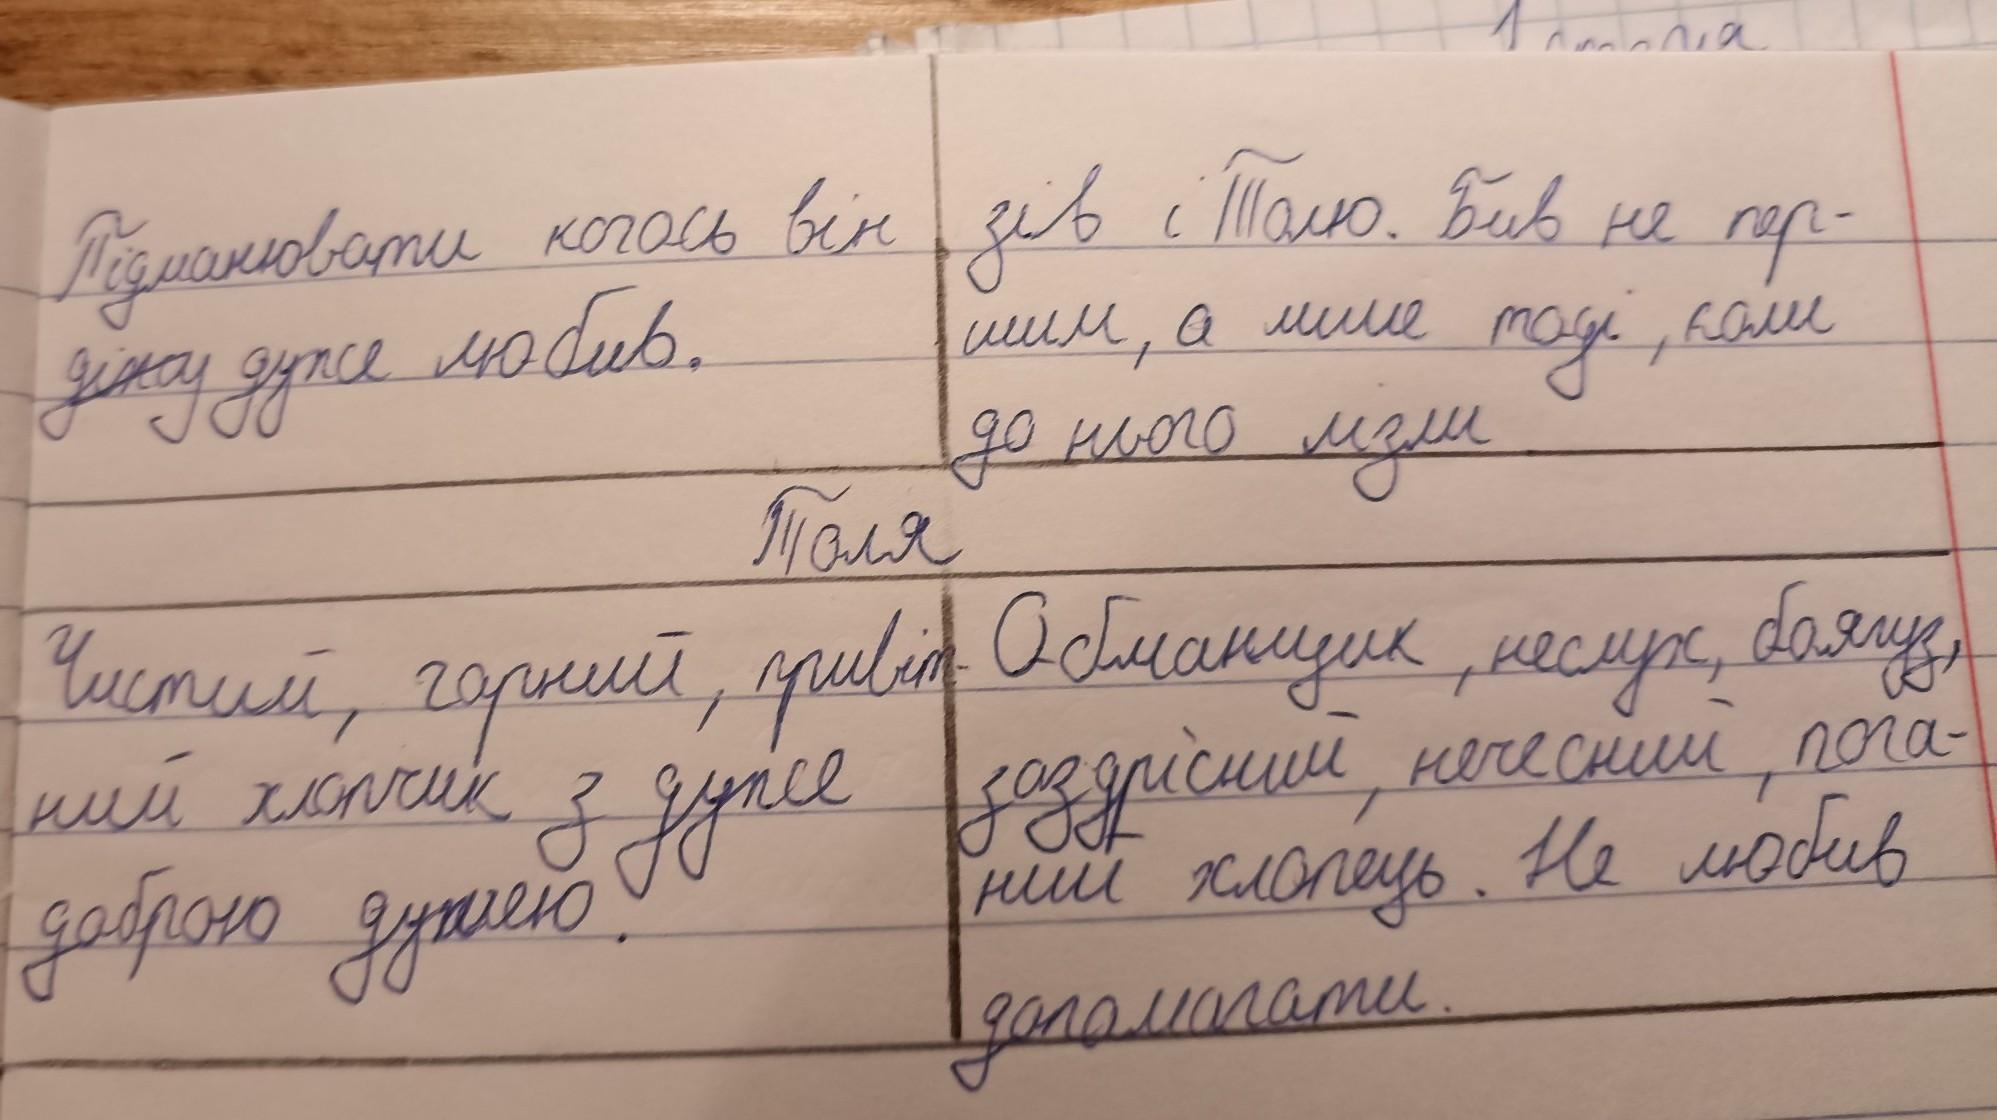 Підманювати когось він
дуже любив.
зів і Толю. Бив не пер-
шим, а лише тоді, коли
до нього лізли
Толя
Чистий, гарний, привіт-
ний хлопчик з дуже
доброю душею.
Обманщик, неслух, боягуз,
заздрісний, нечесний, пога-
ний хлопець. Не любив
допомагати.